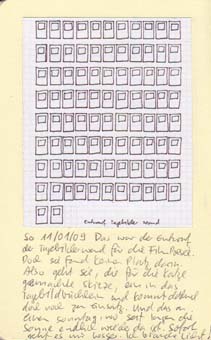 entwurf tagebilder wand
So 11/01/09 Das war der entwurf
der tagebilderwand für die
Doch sie fand keinen Platz darin.
Also geht sie, die für die Katz
gemachte Skizze, ein in das
tagebildbüchlein und kommt
doch noch zum einsatz. Und das an
einem sonntag, wo seit tagen die
Sonne endlich wieder da ist. Sofort
geht es mir besser. Ich brauche Licht!